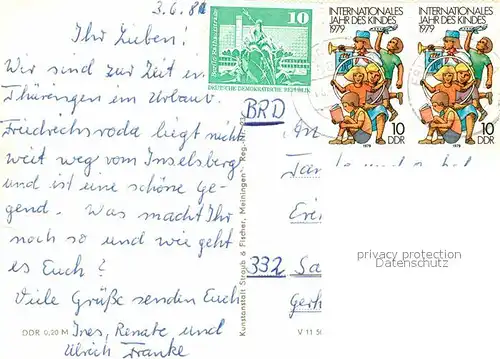 3.6.80
Ihr Lieben!
Wir sind zur Zeit in
Thüringen im Urlaub.
Friedrichsroda liegt nicht
weit weg vom Inselsberg
und ist eine schöne Ge-
gend. Was macht Ihr
noch so und wie geht
es Euch?
Viele Grüße senden Euch
Ines, Renate und
Ulrich Franke
DDR 0,20 M
Kunstanstalt Straub & Fischer, Meiningen Reg.-Nr.
10
DEUTSCHE DEMOKRATISCHE REPUBLIK
INTERNATIONALES
JAHR DES KINDES
1979
10
DDR
1979
INTERNATIONALES
JAHR DES KINDES
1979
10
DDR
1979
BRD
An
Fam
332 Sa
Gerh
V 11 50
privacy protection
Datenschutz